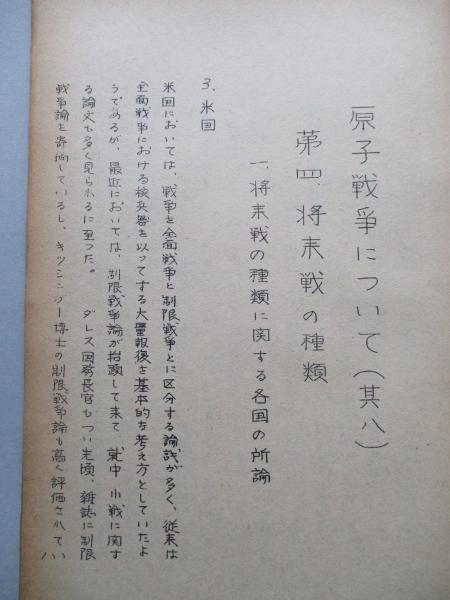 原子戦争について(其八)
第四、将来戦の種類
一、将来戦の種類に関する各国の所論
3、米国
米国においては、戦争を全面戦争と制限戦争とに区分する論議が多く、従来は
全面戦争における核兵器を以ってする大量報復を基本的な考え方としていたよ
うであるが、最近においては、制限戦争論が抬頭して来て、就中 小戦に関す
る論文も多く見られるに至った。 ダレス国務長官もつい先頃、雑誌に制限
戦争論を寄稿しているし、キッシンガー博士の制限戦争論も高く評価されてい